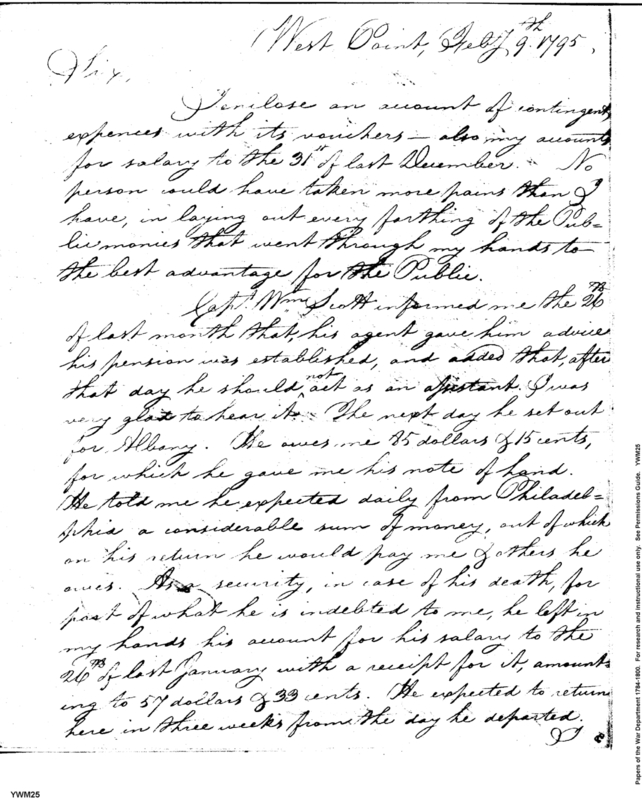 West Point, Feby 9th 1795,
Sir,
I enclose an account of contingent
expences with its vouchers — also my accounts
for salary to the 31st of last December. No
person could have taken more pains than I
have, in laying out every farthing of the Pub=
lic monies that went through my hands to
the best advantage for the Public.
Capt. Wm Scott informed me the 26th
of last month that, his agent gave him advice
his pension was established, and added that, after
that day he should not act as an assistant. I was
very glad to hear it. The next day he set out
for Albany. He owes me 85 dollars & 15 cents,
for which he gave me his note of hand.
He told me he expected daily from Philadel=
phia a considerable sum of money, out of which
on his return he would pay me & others he
owes. As a security, in case of his death, for
part of what he is indebted to me, he left in
my hands his account for his salary to the
26th of last January with a receipt for it, amount
ing to 57 dollars & 33 cents. He expected to return
here in three weeks from the day he departed.
I
Papers of the War Department 1784-1800. For research and instructional use only. See Permissions Guide. YWM25
YWM25